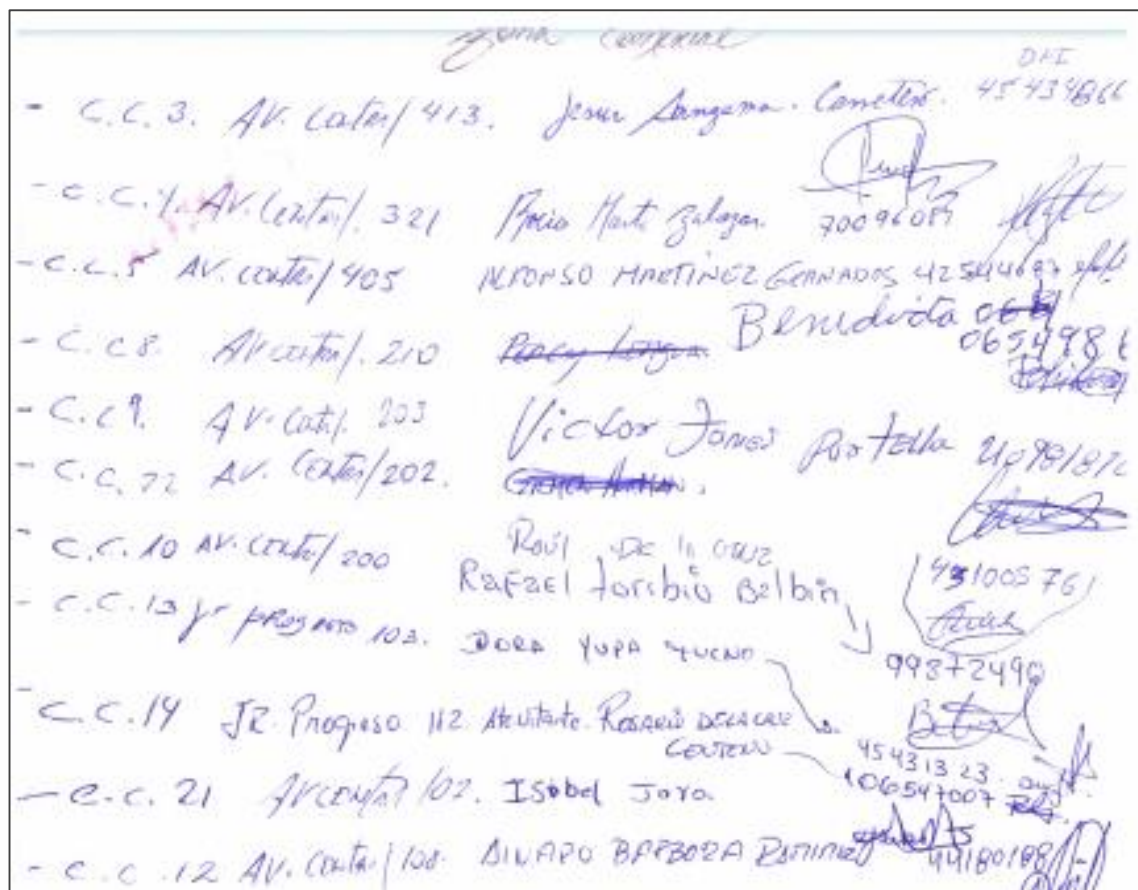 zona comercial
DNI
- C.C. 3. AV. Central / 413. Jesus Sangama. 45434866
- C.C. 4. AV. Central /. 321 Rocio Marti Zalazar. 70096089
- C.C. 5 AV. Central / 405 ALFONSO MARTÍNEZ GRANADOS 42544683
- C.C 8. AV central /. 210 Benedicta
065498
- C.C 9. AV. Central /. 203 Victor Portella
- C.C. 22 AV. Central / 202.
- C.C. 10 AV. Central / 200 Raúl De la Cruz
Rafael Toribio Balbin 43100576
- C.C. 13 Jr progreso 103. DORA YUPA 99872490
- C.C. 14 JR. Progreso 112. Rosario DELACRUZ
CENTENO 45431323
- C.C. 21 AV CENTRAL 102. Isabel Jara. 06547007
- C.C. 12 AV. Central / 100. BARBOZA RAMIREZ 44180188